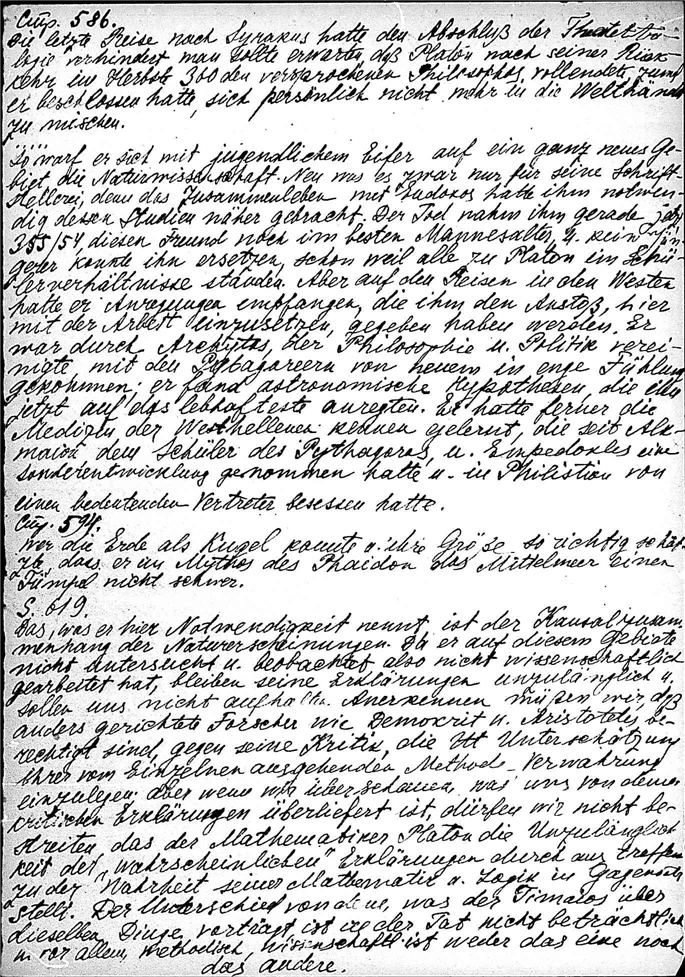 Cmp. 586.
Die letzte Reise nach Syrakus hatte den Abschluß der
logie verhindert man sollte erwarten, daß Platon nach seiner Rück
kehr im Herbste 360 den versprochenen Philosophos vollendete, zumal
er beschlossen hatte, sich persönlich nicht mehr in die Welthändel
zu mischen.
So warf er sich mit jugendlichem Eifer auf ein ganz neues Ge-
biet die Naturwissenschaft. Neu war es zwar nur für seine Schrift
stellerei, denn das Zusammenleben mit Eudoxos hatte ihm notwen-
dig dessen Studien näher gebracht. Der Tod nahm ihm gerade jetzt
355/54 diesen Freund noch im besten Mannesalter, u. kein jün
gerer konnte ihn ersetzen, schon weil alle zu Platon im Schü-
lerverhältnisse standen. Aber auf den Reisen in den Westen
hatte er Anregungen empfangen, die ihm den Anstoß, hier
mit der Arbeit einzusetzen, gegeben haben werden. Er
war durch Archytas, der Philosophie u. Politik verei-
nigte mit den Pytagoreern von neuem in enge Fühlung
gekommen; er fand astronomische Hypothesen die ihn
jetzt auf das lebhafteste anregten. Er hatte ferner die
Medizin der Westhellenen kennen gelernt, die seit Alk-
maion dem Schüler des Pythagoras, u. Empedokles eine
Sonderentwicklung genommen hatte u. in Philistion von
einen bedeutenden Vertreter besessen hatte.
Cmp. 594.
Wer die Erde als Kugel kannte u. ihre Größe so richtig schät
zte, dass er im Mythos des Phaidon das Mittelmeer einen
Tümpel nicht schwer.
S. 619
Das, was er hier Notwendigkeit nennt, ist der Kausalzusam
menhang der Naturerscheinungen. Da er auf diesem Gebiete
nicht untersucht u. beobachtet also nicht wissenschaftlich
gearbeitet hat, bleiben seine Erklärungen unzulänglich u.
sollen uns nicht aufhalten. Anerkennen müßen wir, daß
anders gerichtete Forscher wie Demokrit u. Aristoteles be-
rechtigt sind, gegen seine Kritik, die Unterschätzung
ihrer vom Einzelnen ausgehenden Methode Verwahrung
einzulegen; aber wenn wir überschauen, was uns von deren
Erklärungen überliefert ist, dürfen wir nicht be-
streiten das der Mathematiker Platon die Unzulänglich
keit der „wahrscheinlichen" Erklärungen durch
zu der Wahrheit seiner Mathematik u. Logik in Gegensatz
stellt. Der Unterschied von was der Timaios über
dieselben Dinge vorträgt, ist in der Tat nicht beträchtlich
u. vor allem, methodisch, wissenschaftl. ist weder das eine noch
das andere.